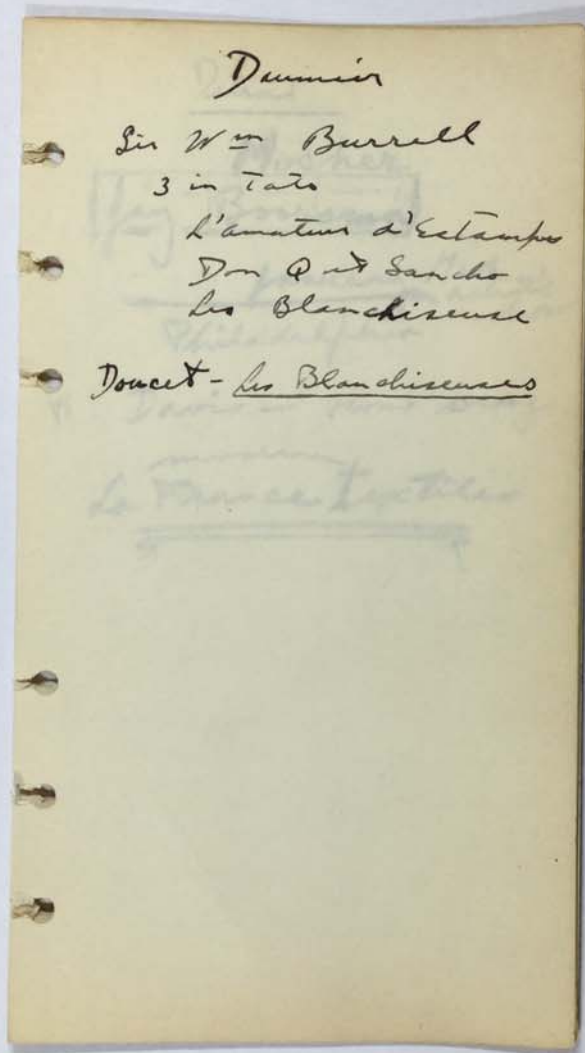 Daumier
Sir Wm Burrell
3 in Tate
L'amateur d'Estampes
Don Q et Sancho
Les Blanchiseuse
Doucet - Les Blanchiseuses